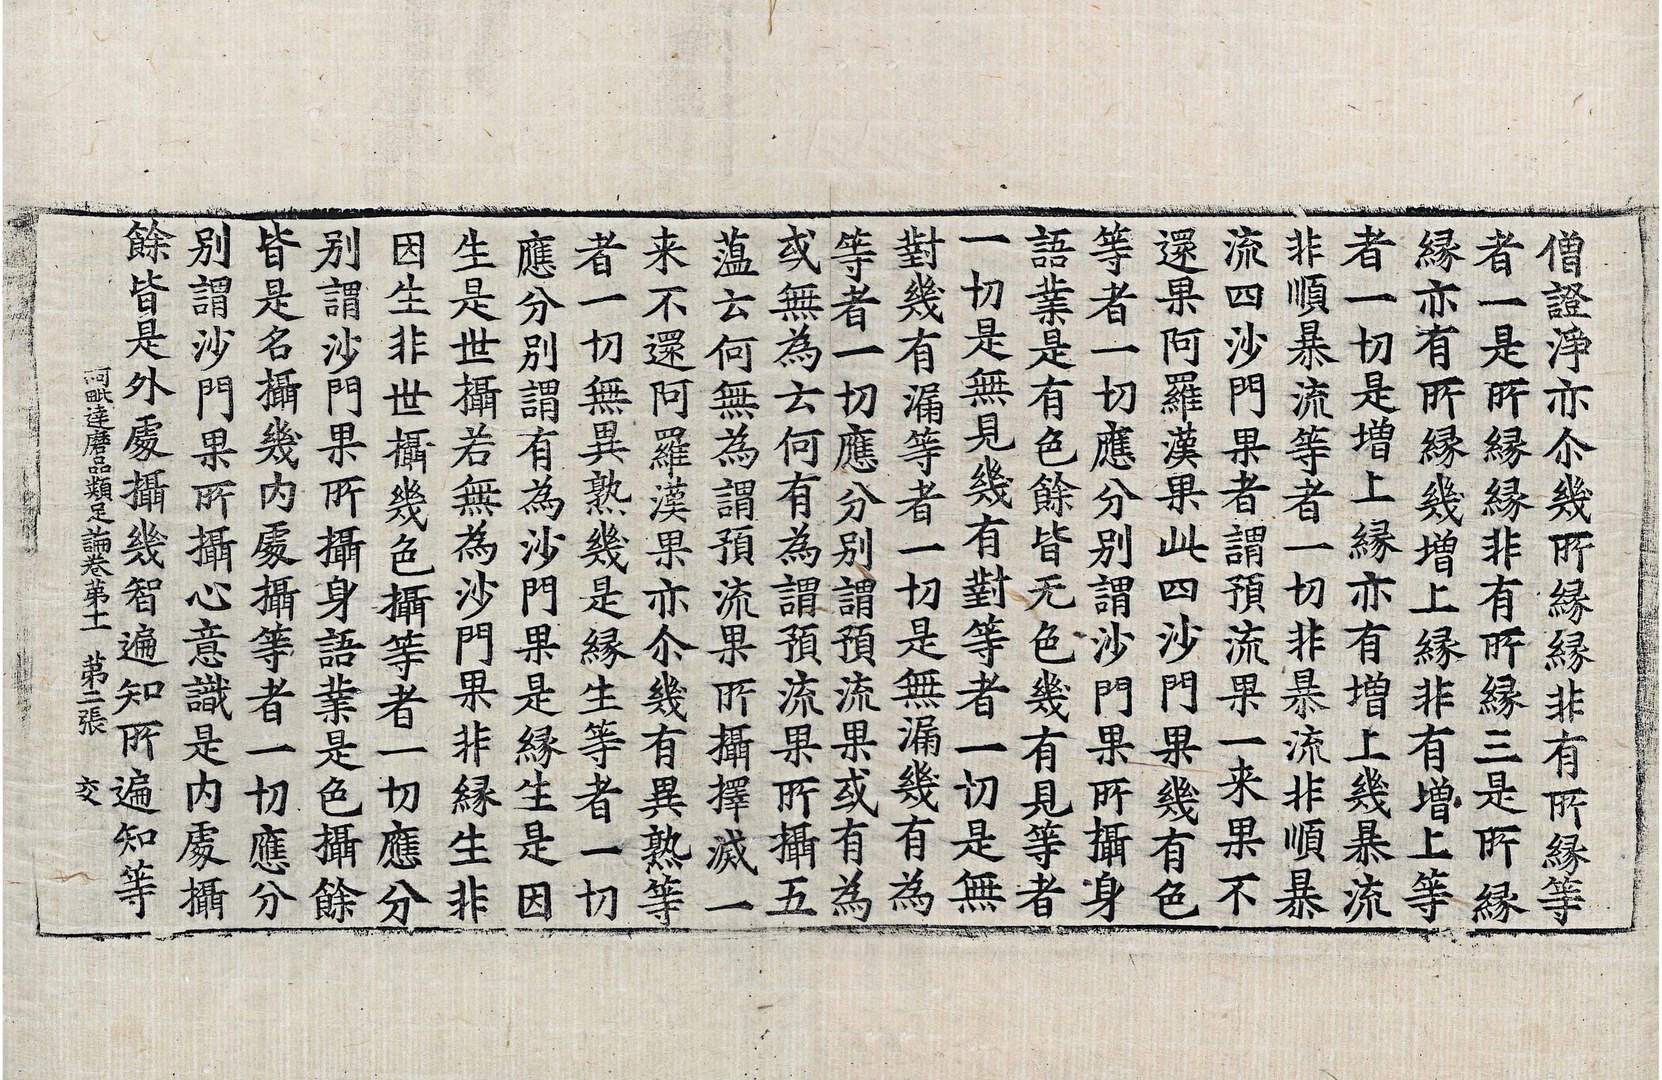 僧證淨亦尒幾所縁縁非有所縁等
者一是所縁縁非有所縁三是所縁
縁亦有所縁幾增上縁非有增上等
者一切是增上縁亦有增上幾暴流
非順暴流等者一切非暴流非順暴
流四沙門果者謂預流果一来果不
還果阿羅漢果此四沙門果幾有色
等者一切應分别謂沙門果所攝身
語業是有色餘皆无色幾有見等者
一切是無見幾有對等者一切是無
對幾有漏等者一切是無漏幾有為
等者一切應分别謂預流果或有為
或無為云何有為謂預流果所攝五
蕰云何無為謂預流果所攝擇滅一
来不還阿羅漢果亦尒幾有異熟等
者一切無異熟幾是縁生等者一切
應分别謂有為沙門果是縁生是因
生是世攝若無為沙門果非縁生非
因生非世攝幾色攝等者一切應分
别謂沙門果所攝身語業是色攝餘
皆是名攝幾内處攝等者一切應分
别謂沙門果所攝心意識是内處攝
餘皆是外處攝幾智遍知所遍知等
阿毗達磨品類足論卷第十一 第二張 交